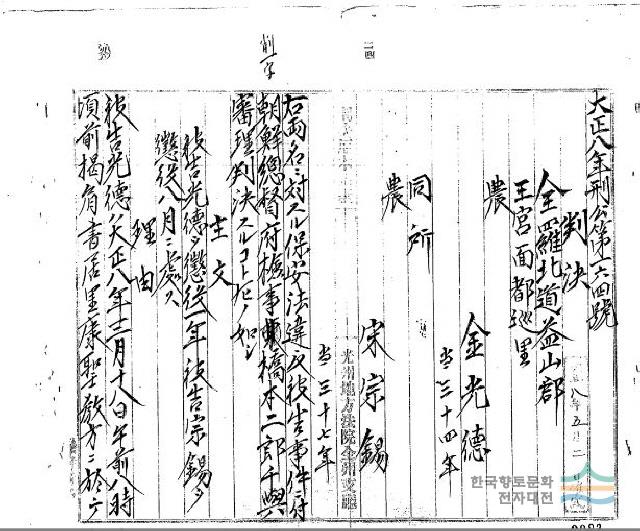 大正八年刑公第一六四號
判決
全羅北道益山郡
王宮面都巡里
農
金光德
当三十四年
同所
農
宋宗錫
当三十七年
右両名ニ対スル保安法違反被告事件ニ付
朝鮮總督府検事橋本二郎干與
審理判決スルコト左ノ如シ
主文
被告光德ヲ懲役一年被告宗錫ヲ
懲役八月ニ處ス
理由
被告光德ハ大正八年三月十八日午前八時
頃前掲肩書居里康聖敬方ニ於テ
光州地方法院全州支廳
削一字
한국향토문화
전자대전